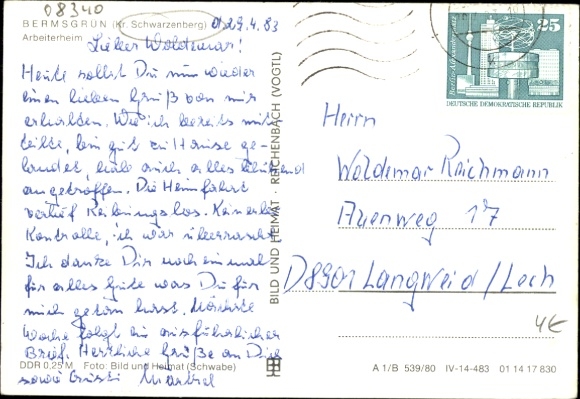 08340
BERMSGRÜN (Kr. Schwarzenberg)
d. 29.4.83
Arbeiterheim
Lieber Woldemar!
Heute sollst Du nun wieder
einen lieben Gruß von mir
erhalten. Wie ich bereits mit-
teilte, bin gut zu Hause ge-
landet, habe auch alles blühend
angetroffen. Die Heimfahrt
verlief Reibungslos. Keinerlei
Kontrolle, ich war überrascht.
Ich danke Dir noch einmal
für alles Gute was Du für
mich getan hast. Nächste
Woche folgt ein ausführlicher
Brief. Herzliche Grüße an Dich
sowie Gusti
DDR 0,25 M Foto: Bild und Heimat (Schwabe)
BILD UND HEIMAT · REICHENBACH (VOGTL)
25
Berlin-Alexanderplatz
DEUTSCHE DEMOKRATISCHE REPUBLIK
Herrn
Woldemar Reichmann
Auenweg 17
D8901 Langweid/Lech
4€
A 1/B 539/80 IV-14-483 01 14 17 830